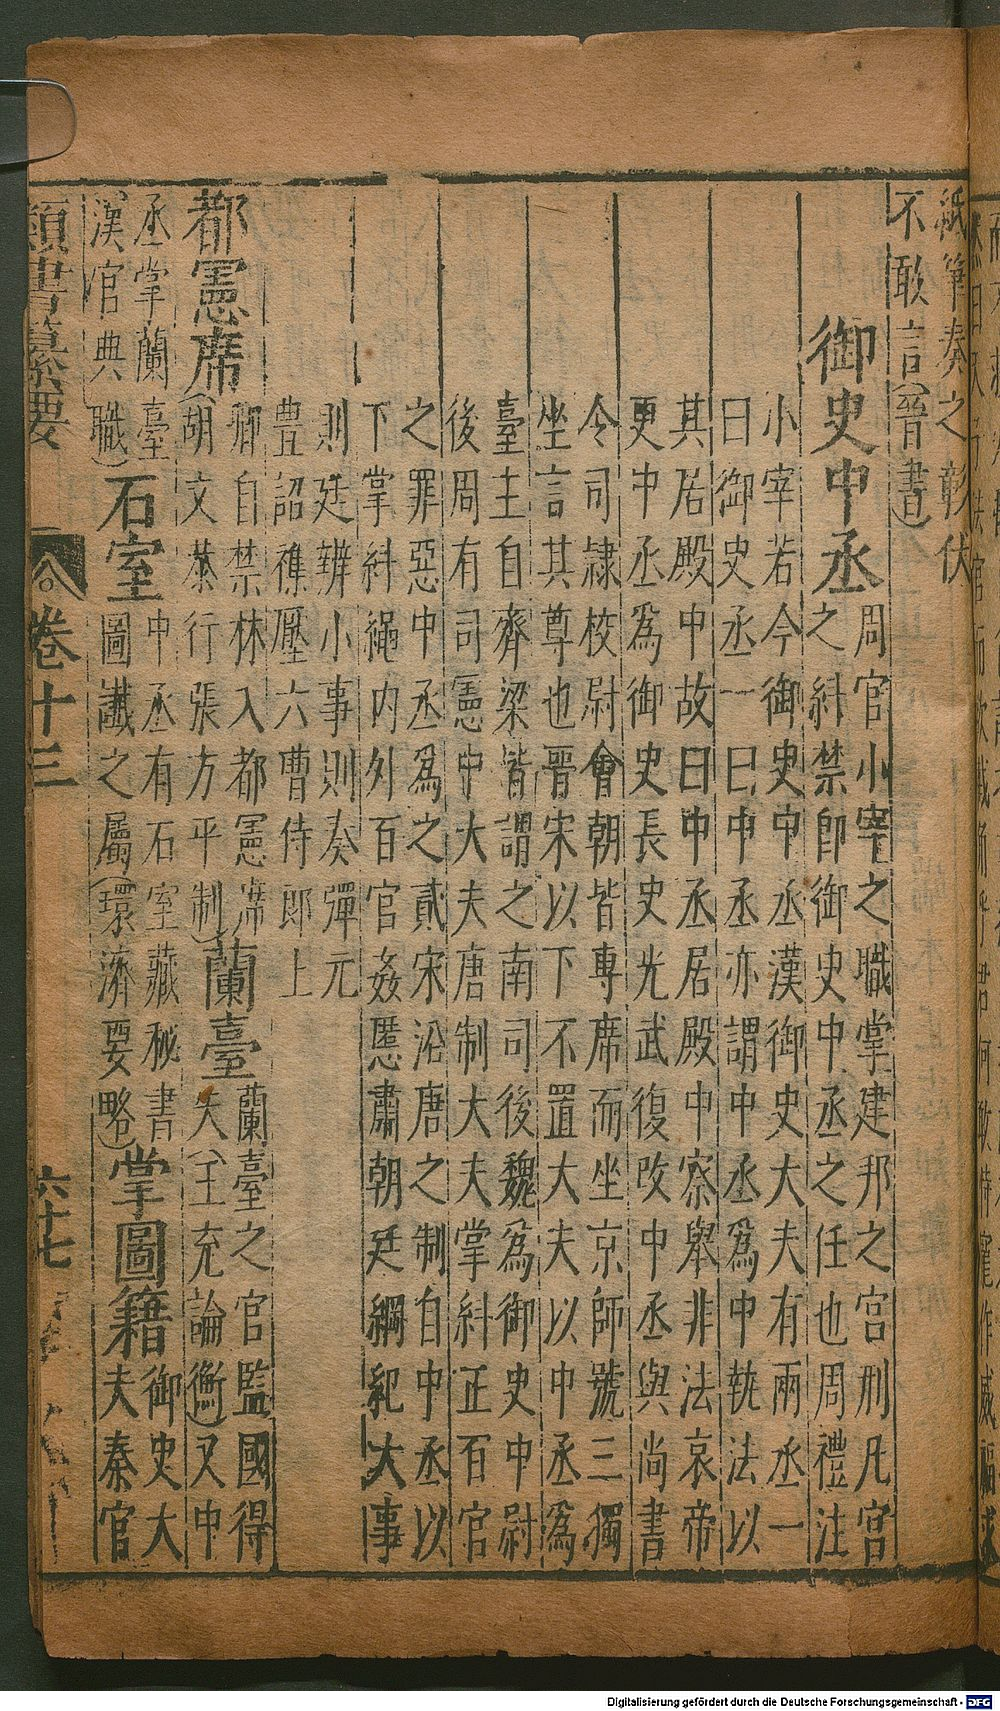 紙筆奏之彰伏
不敢言(晉書)
御史中丞
周官小宰之職掌建邦之宮刑凡宮
之糾禁卽御史中丞之任也周禮注
小宰若今御史中丞漢御史大夫有兩丞一
曰御史丞一曰中丞亦謂中丞爲中執法以
其居殿中故曰中丞居殿中察舉非法哀帝
更中丞爲御史長史光武復改中丞與尚書
令司隷校尉會朝皆專席而坐京師號三獨
坐言其尊也晉宋以下不置大夫以中丞爲
臺主自齊梁皆謂之南司後魏爲御史中尉
後周有司憲中大夫唐制大夫掌糾正百官
之罪惡中丞爲之貳宋沿唐之制自中丞以
下掌糾繩內外百官姦慝肅朝廷綱紀大事
則廷辨小事則奏彈元
豊詔雜壓六曹侍郎上
都憲席
卿自禁林入都憲席
(胡文恭行張方平制)
蘭臺
蘭臺之官監國得
失(王充論衡)又中
丞掌蘭臺
漢官典職)
石室
中丞有石室藏秘書
圖讖之屬(環濟要略)
掌圖籍
御史大
夫秦官
類書纂要
卷十三
六十七
Digitalisierung gefördert durch die Deutsche Forschungsgemeinschaft - DFG